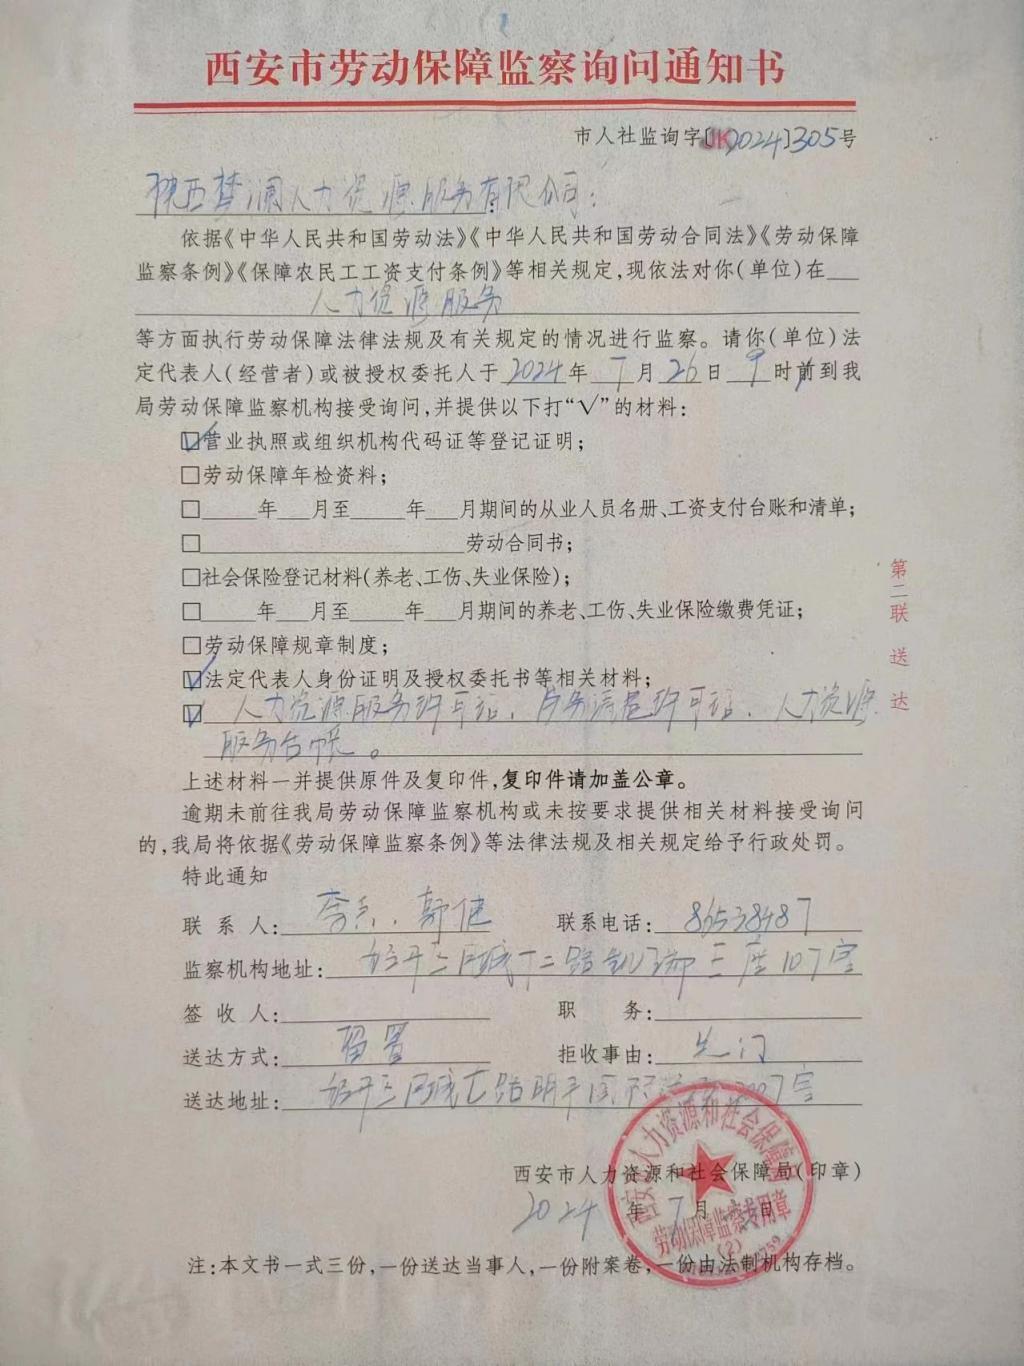 西安市劳动保障监察询问通知书
市人社监询字〔JK2024〕305号
陕西梦澜人力资源服务有限公司：
依据《中华人民共和国劳动法》《中华人民共和国劳动合同法》《劳动保障
监察条例》《保障农民工工资支付条例》等相关规定,现依法对你(单位)在
人力资源服务
等方面执行劳动保障法律法规及有关规定的情况进行监察。请你(单位)法
定代表人(经营者)或被授权委托人于2024年7月26日9时前到我
局劳动保障监察机构接受询问,并提供以下打“√”的材料：
☑营业执照或组织机构代码证等登记证明；
□劳动保障年检资料；
□____年___月至____年___月期间的从业人员名册、工资支付台账和清单；
□____劳动合同书；
□社会保险登记材料(养老、工伤、失业保险)；
□____年___月至____年___月期间的养老、工伤、失业保险缴费凭证；
□劳动保障规章制度；
☑法定代表人身份证明及授权委托书等相关材料；
☑人力资源服务许可证、劳务派遣许可证、人力资源
服务台帐。
上述材料一并提供原件及复印件,复印件请加盖公章。
逾期未前往我局劳动保障监察机构或未按要求提供相关材料接受询问
的,我局将依据《劳动保障监察条例》等法律法规及相关规定给予行政处罚。
特此通知
联系人： 郭健
联系电话：86538487
监察机构地址：经开三凤城十二路凯瑞三座107室
签收人：
职务：
送达方式：留置
拒收事由：
送达地址：经开三凤城七路明丰国际
西安市人力资源和社会保障局(印章)
2024年7月 日
注：本文书一式三份,一份送达当事人,一份附案卷,一份由法制机构存档。
第二联 送达
西安市人力资源和社会保障局
劳动保障监察专用章
(2)